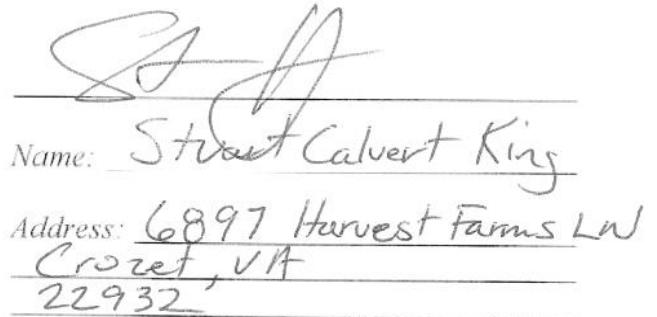 Name: Stuart Calvert King
Address: 6897 Harvest Farms LN
Crozet, VA
22932